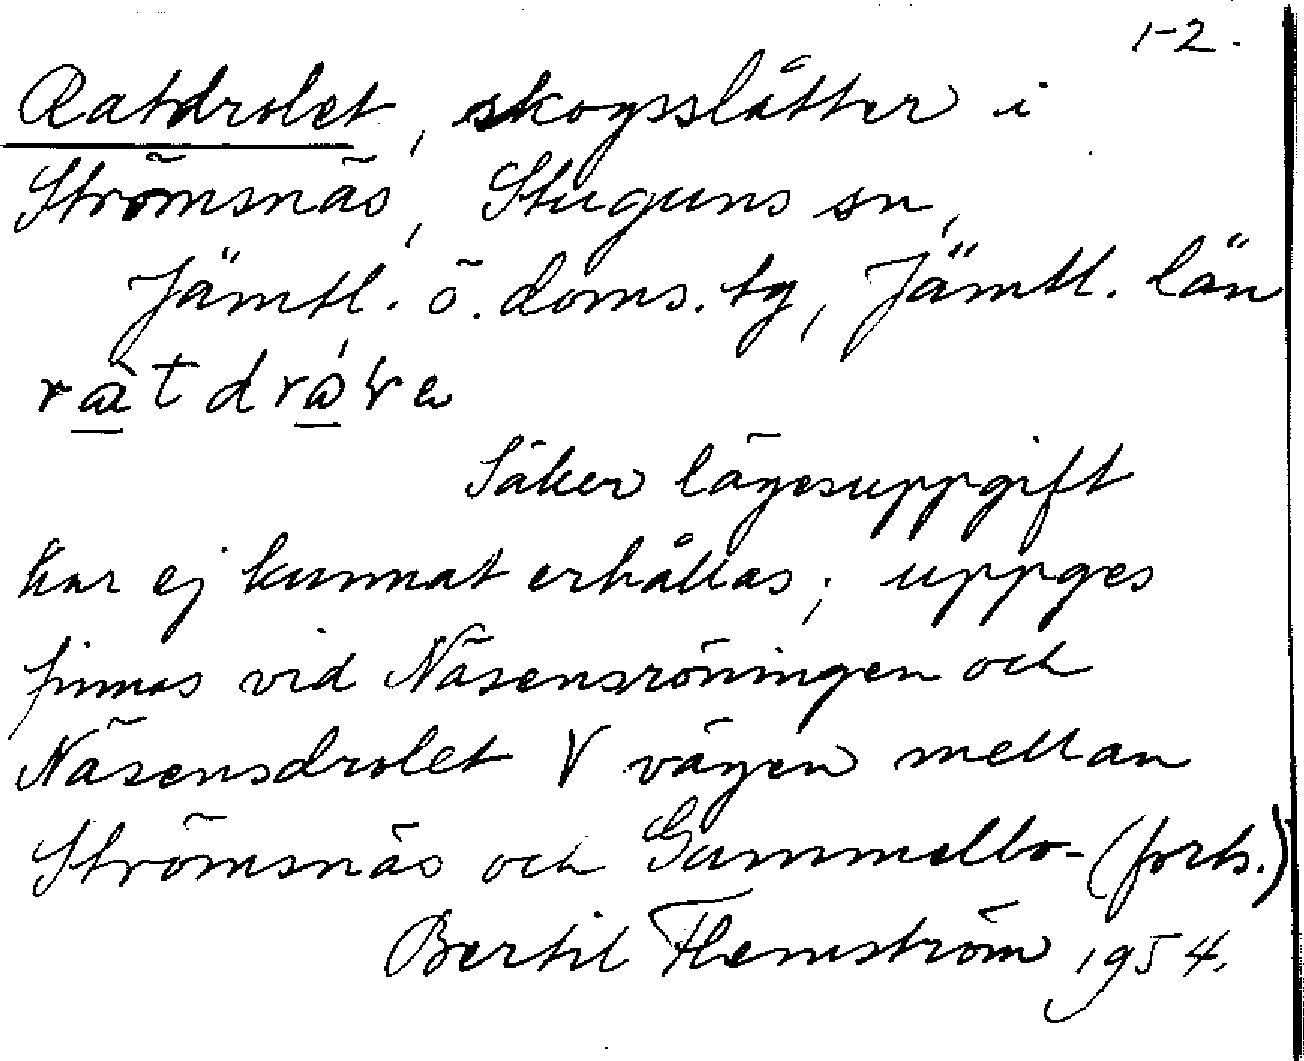 1-2.
Ratdrolet, skogsslåtter i
Strömsnäs, Stuguns sn,
Jämtl. ö. doms. tg, Jämtl. län
Säker lägesuppgift
har ej kunnat erhållas; uppges
finnas vid Näsensröningen och
Näsensdrolet V vägen mellan
Strömsnäs och Gammelbo- (forts.)
Bertil Flemström 1954.